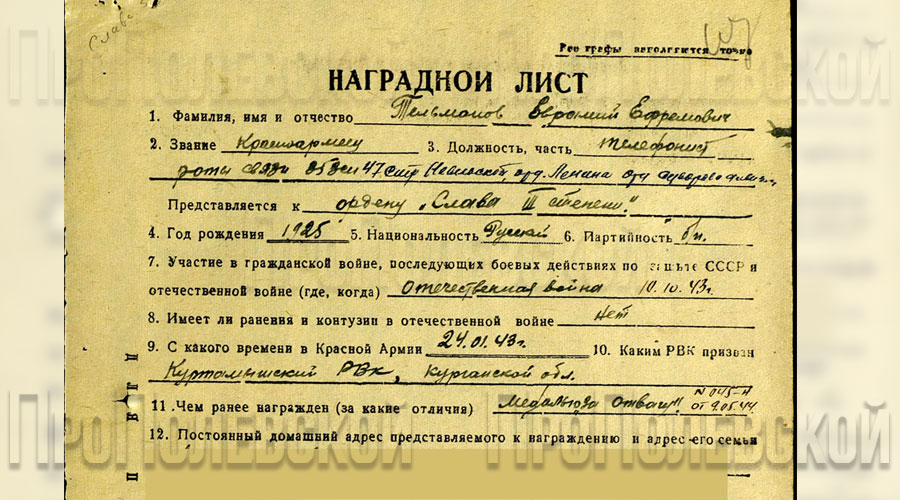 Славе 3
Все графы заполняются точно
НАГРАДНОЙ ЛИСТ
1. Фамилия, имя и отчество Тельманов Евгений Ефремович
2. Звание Красноармеец 3. Должность, часть телефонист
роты связи 47 Невельской, орд. Ленина
Представляется к ордену „Слава III степени"
4. Год рождения 1925 5. Национальность Русский 6. Партийность б/п.
7. Участие в гражданской войне, последующих боевых действиях по защите СССР и
отечественной войне (где, когда) Отечественная война 10.10.43г.
8. Имеет ли ранения и контузии в отечественной войне нет
9. С какого времени в Красной Армии 24.01.43г. 10. Каким РВК призван
Куртамышский РВК, Курганской обл.
11. Чем ранее награжден (за какие отличия) Медаль „За отвагу" N 045-Н
от 9.05.44
12. Постоянный домашний адрес представляемого к награждению и адрес его семьи